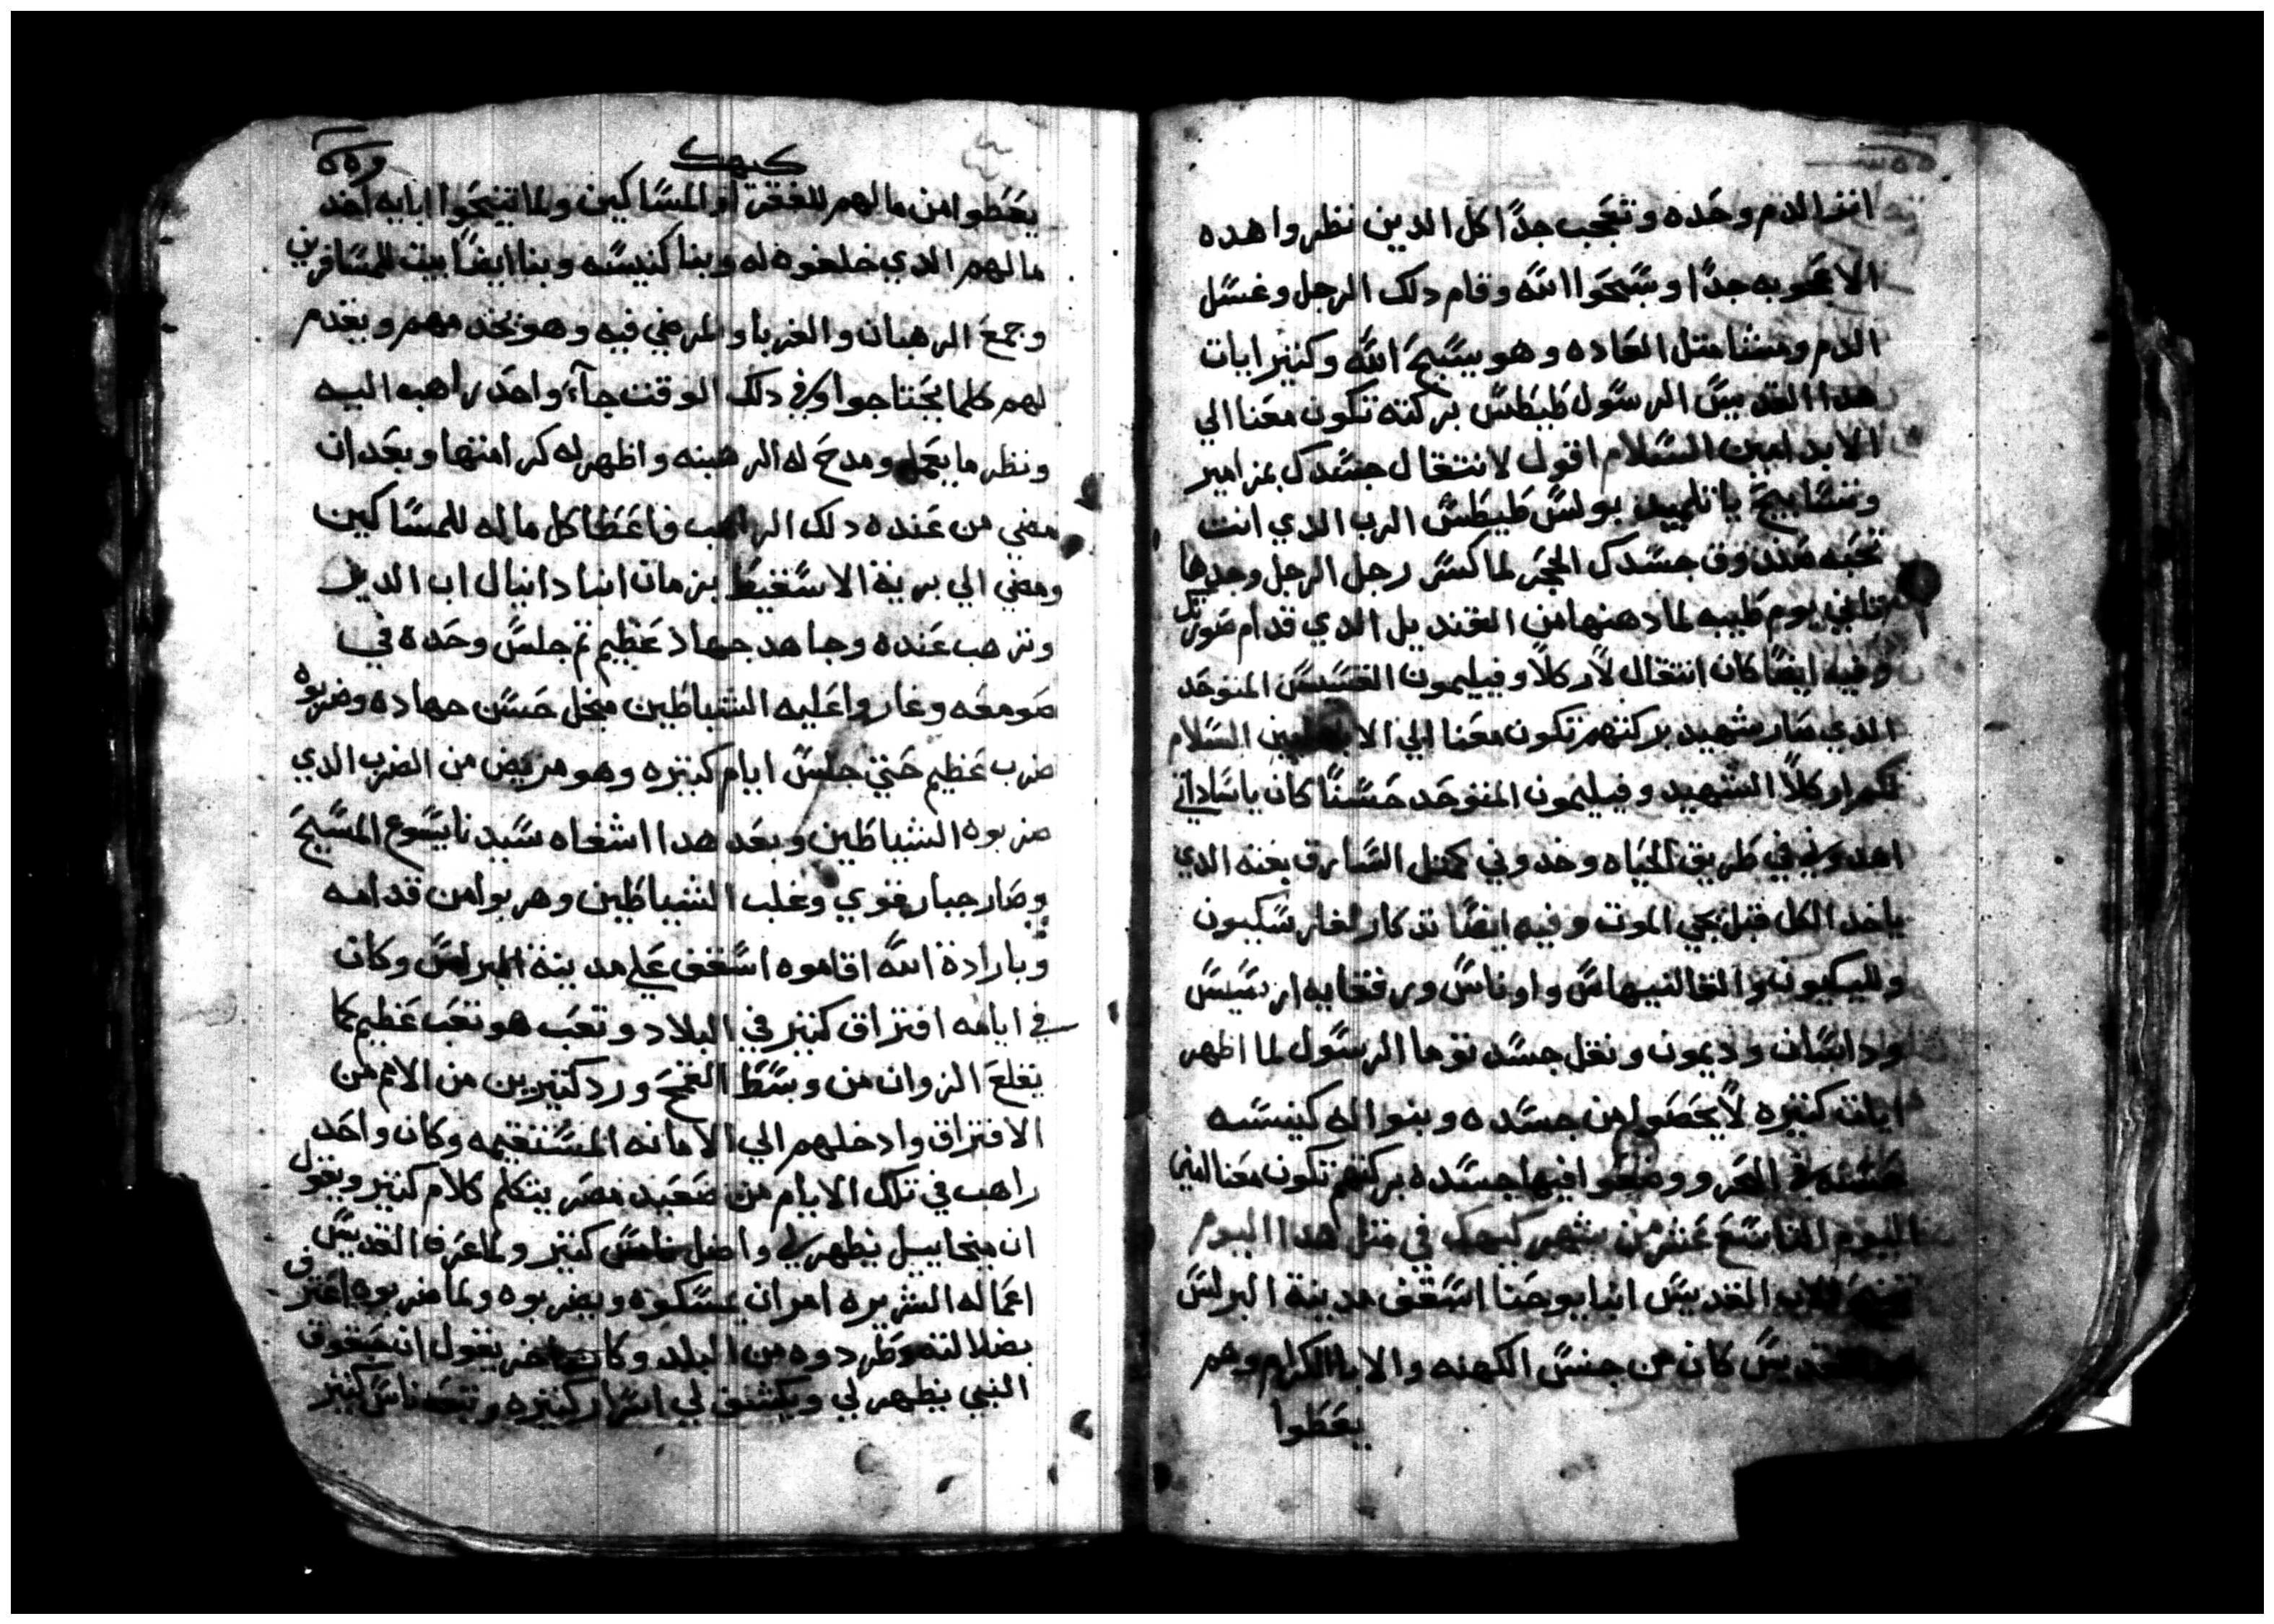 اثر الدم وحده وتعجب جدًا كل الدين نظروا هده
الاعجوبه جدًا وسبحوا الله وقام دلك الرجل وغسل
الدم ومشا متل العاده وهو يسبح الله وكتير ايات
هدا القديس الرسول طيطس بركته تكون معنا الي
الابد امين السلام اقول لانتقال جسدك بمزامير
وتسابيح يا تلميد بولس طيطس الرب الدي انت
تحبه صندوق جسدك الحجر لما كسر رجل الرجل وجدها
تاني يوم طيبه لما دهنها من القنديل الدي قدام صورتك
وفيه ايضًا كان انتقال لاركلا وفيليمون القسيس المتوحد
الدي صار شهيد بركتهم تكون معنا الي الابد امين السلام
لكم اركلا الشهيد وفيليمون المتوحد حسنًا كان يا ساداتي
اهدوني في طريق الحياه وخدوني كمتل السارق بغته الدي
ياخد الكل قبل يجي الموت وفيه ايضًا تدكار لغار سكيون
ولليكيون والقا لنيبهاس واوناس ورفقايه ارسيس
وداسان وديمون ونقل جسد توما الرسول لما اظهر
ايات كتيره لا يحصو من جسده وبنوا له كنيسه
حسنه في البحر ووضعوا فيها جسده بركتهم تكون معنا امين
اليوم التاسع عشر من شهر كيهك في متل هدا اليوم
تنيح الاب القديس انبا يوحنا اسقف مدينة البرلس
القديس كان من جنس الكهنه والابا الكرام وهم
يعطوا
كيهك
يعطوا من مالهم للفقرا والمساكين ولما تنيحوا ابايه اخد
مالهم الدي خلفوه له وبنا كنيسه وبنا ايضًا بيت للمسافرين
وجمع الرهبان والغربا والمرضي فيه وهو يخدمهم ويقدم
لهم كلما يحتاجوا وفي دلك الوقت جآء واحد راهب اليه
ونظر ما يعمل ومدح له الرهبنه واظهر له كرامتها وبعد ان
مضي من عنده دلك الراهب فاعطا كل ماله للمساكين
ومضي الي برية الاسقيط بزمان انبا دانيال اب الدير
وترهب عنده وجاهد جهاد عظيم تم جلس وحده في
صومعه وغاروا عليه الشياطين مجل حسن جهاده وضربوه
ضرب عظيم حتي جلس ايام كتيره وهو مريض من الضرب الدي
ضربوه الشياطين وبعد هدا اشفاه سيدنا يسوع المسيح
وصار جبار قوي وغلب الشياطين وهربوا من قدامه
وبارادة الله اقاموه اسقف علي مدينة البرلس وكان
في ايامه افتراق كتير في البلاد وتعب هو تعب عظيم كما
يقلع الزوان من وسط القمح ورد كتيرين من الامم من
الافتراق وادخلهم الي الامانه المستقيمه وكان واحد
راهب في تلك الايام من صعيد مصر يتكلم كلام كتير ويقول
ان ميخاييل يظهر لي واضل ناس كتير ولما عرف القديس
اعماله الشريره امر ان يمسكوه ويضربوه ولما ضربوه اعترف
بضلالته وطردوه من البلد وكان واخر يقول ان حبقوق
النبي يظهر لي ويكشف لي اسرار كتيره وتبعه ناس كتير